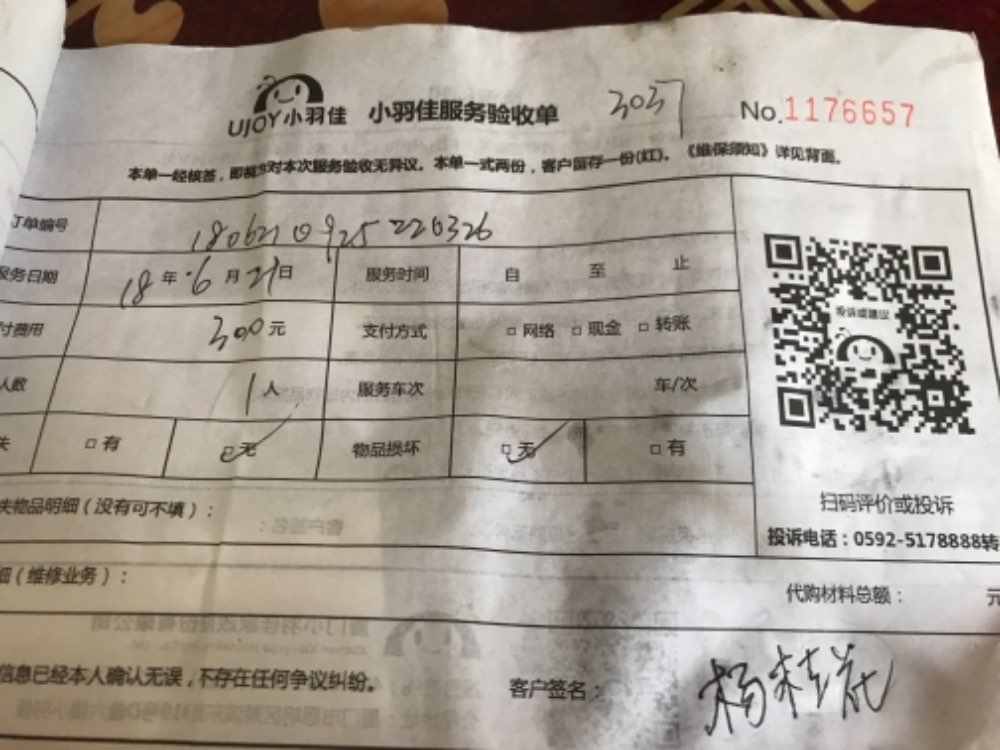 UJOY小羽佳 小羽佳服务验收单 3037 No.1176657
本单一经核签，即视为对本次服务验收无异议。本单一式两份，客户留存一份(红)。《维保须知》详见背面。
订单编号 1806210925220326
服务日期 18年6月21日 服务时间 自 至 止
付费用 300元 支付方式 □网络 □现金 □转账
人数 1人 服务车次 车/次
失 □有 □无 物品损坏 □无 □有
投诉或建议
扫码评价或投诉
投诉电话：0592-5178888转
失物品明细（没有可不填）：
细（维修业务）： 代购材料总额： 元
信息已经本人确认无误，不存在任何争议纠纷。 客户签名：杨桂花